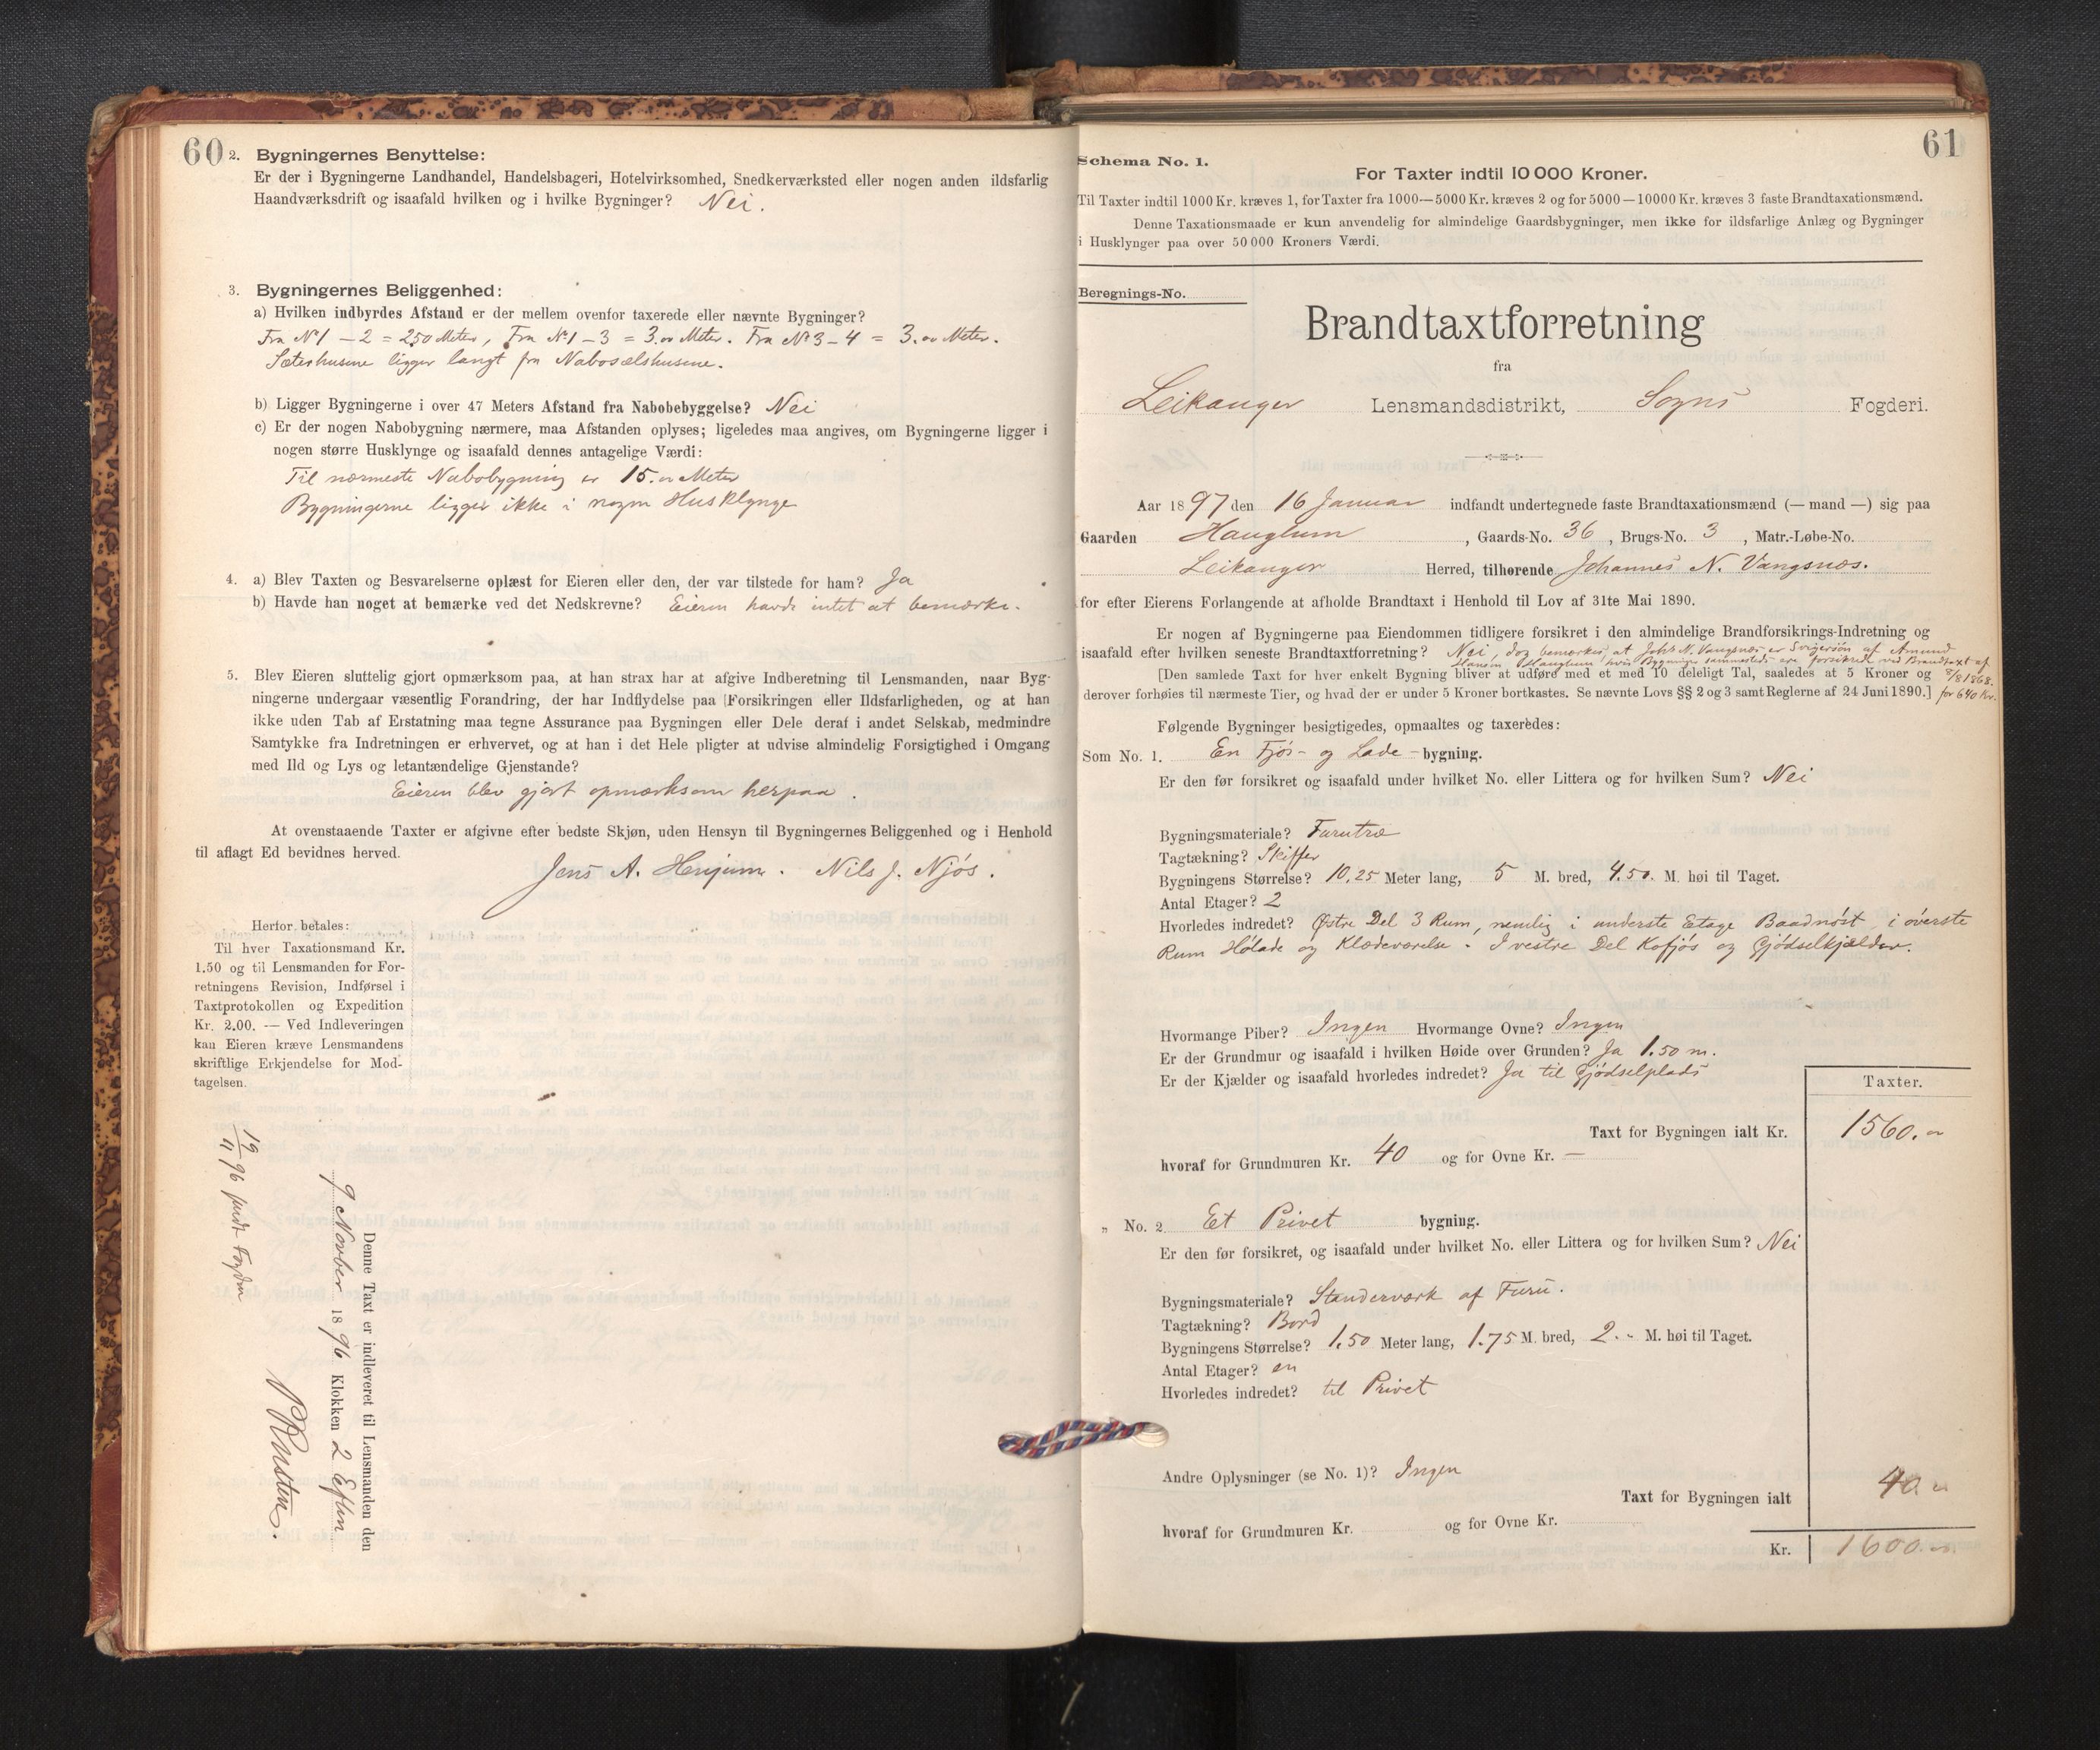 60
2. Bygningernes Benyttelse:
Er der i Bygningerne Landhandel, Handelsbageri, Hotelvirksomhed, Snedkerværksted eller nogen anden ildsfarlig
Haandværksdrift og isaafald hvilken og i hvilke Bygninger? Nei.
3. Bygningernes Beliggenhed:
a) Hvilken indbyrdes Afstand er der mellem ovenfor taxerede eller nævnte Bygninger?
Fra No 1 – 2 = 250 Meter, Fra No 1 – 3 = 3.00 Meter. Fra No 3 – 4 = 3.00 Meter.
Sæterhusene ligger langt fra Nabosælshusene.
b) Ligger Bygningerne i over 47 Meters Afstand fra Nabobebyggelse? Nei
c) Er der nogen Nabobygning nærmere, maa Afstanden oplyses; ligeledes maa angives, om Bygningerne ligger i
nogen større Husklynge og isaafald dennes antagelige Værdi:
Til nærmeste Nabobygning er 15.00 Meter
Bygningerne ligger ikke i nogen Husklynge
4. a) Blev Taxten og Besvarelserne oplæst for Eieren eller den, der var tilstede for ham? Ja
b) Havde han noget at bemærke ved det Nedskrevne? Eieren havde intet at bemærke.
5. Blev Eieren sluttelig gjort opmærksom paa, at han strax har at afgive Indberetning til Lensmanden, naar Byg-
ningerne undergaar væsentlig Forandring, der har Indflydelse paa Forsikringen eller Ildsfarligheden, og at han
ikke uden Tab af Erstatning maa tegne Assurance paa Bygningen eller Dele deraf i andet Selskab, medmindre
Samtykke fra Indretningen er erhvervet, og at han i det Hele pligter at udvise almindelig Forsigtighed i Omgang
med Ild og Lys og letantændelige Gjenstande?
Eieren blev gjort opmærksom herpaa.
At ovenstaaende Taxter er afgivne efter bedste Skjøn, uden Hensyn til Bygningernes Beliggenhed og i Henhold
til aflagt Ed bevidnes herved.
Jens A. Henjum. Nils J. Njøs.
Herfor betales:
Til hver Taxationsmand Kr.
1.50 og til Lensmanden for For-
retningens Revision, Indførsel i
Taxtprotokollen og Expedition
Kr. 2.00. — Ved Indleveringen
kan Eieren kræve Lensmandens
skriftlige Erkjendelse for Mod-
tagelsen.
Denne Taxt er indleveret til Lensmanden den
9 Novber 1896 Klokken 2 Eftm
19/11 96 sendt Fogden
61
Schema No. 1.
For Taxter indtil 10 000 Kroner.
Til Taxter indtil 1000 Kr. kræves 1, for Taxter fra 1000—5000 Kr. kræves 2 og for 5000—10000 Kr. kræves 3 faste Brandtaxationsmænd.
Denne Taxationsmaade er kun anvendelig for almindelige Gaardsbygninger, men ikke for ildsfarlige Anlæg og Bygninger
i Husklynger paa over 50 000 Kroners Værdi.
Beregnings-No.
Brandtaxtforretning
fra
Leikanger Lensmandsdistrikt, Sogns Fogderi.
Aar 1897 den 16 Januar indfandt undertegnede faste Brandtaxationsmænd (— mand —) sig paa
Gaarden Hauglum, Gaards-No. 36, Brugs-No. 3, Matr.-Løbe-No.
Leikanger Herred, tilhørende Johannes N. Vangsnæs.
for efter Eierens Forlangende at afholde Brandtaxt i Henhold til Lov af 31te Mai 1890.
Er nogen af Bygningerne paa Eiendommen tidligere forsikret i den almindelige Brandforsikrings-Indretning og
isaafald efter hvilken seneste Brandtaxtforretning? Nei, dog bemærkes, at Johs N. Vangsnæs er Svigersøn af Amund
Hansen Hauglum hvis Bygninger sammesteds ere forsikrede ved Brandtaxt af
8/8 1868.
for 640 Kr.
[Den samlede Taxt for hver enkelt Bygning bliver at udføre med et med 10 deleligt Tal, saaledes at 5 Kroner og
derover forhøies til nærmeste Tier, og hvad der er under 5 Kroner bortkastes. Se nævnte Lovs §§ 2 og 3 samt Reglerne af 24 Juni 1890.]
Følgende Bygninger besigtigedes, opmaaltes og taxeredes:
Som No. 1. En Fjøs- og Lade- bygning.
Er den før forsikret og isaafald under hvilket No. eller Littera og for hvilken Sum? Nei
Bygningsmateriale? Furutræ
Tagtækning? Skiffer
Bygningens Størrelse? 10.25 Meter lang, 5 M. bred, 4.50. M. høi til Taget.
Antal Etager? 2
Hvorledes indredet? Østre Del 3 Rum, nemlig i underste Etage Baadnøst, i øverste
Rum Hølade og Klædeværelse. I vestre Del Kofjøs og Gjødselkjælder.
Hvormange Piber? Ingen Hvormange Ovne? Ingen
Er der Grundmur og isaafald i hvilken Høide over Grunden? Ja 1.50 m.
Er der Kjælder og isaafald hvorledes indredet? Ja til Gjødselplads
Taxter.
Taxt for Bygningen ialt Kr. 1560.00
hvoraf for Grundmuren Kr. 40 og for Ovne Kr. —
„ No. 2 Et Privet bygning.
Er den før forsikret, og isaafald under hvilket No. eller Littera og for hvilken Sum? Nei
Bygningsmateriale? Standerværk af Furu.
Tagtækning? Bord
Bygningens Størrelse? 1.50 Meter lang, 1.75 M. bred, 2.- M. høi til Taget.
Antal Etager? en
Hvorledes indredet? til Privet
Andre Oplysninger (se No. 1)? Ingen
Taxt for Bygningen ialt 40.00
hvoraf for Grundmuren Kr. og for Ovne Kr.
Kr. 1600.00